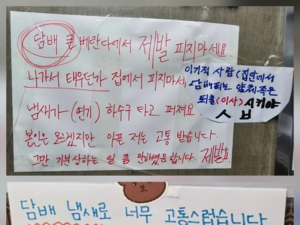 담배 를 베란다에서 제발 피지마세요
나가서 태우던가 집에서 피지마세,
냄새가 (연기) 하수구 타고 퍼져요
본인은 모르겠지만 아픈 저는 고통 받습니다
그만 기분상하는 일 좀 안했으면 합니다. 제발요
이기적 사람 (집안에서
담배피는
(이사) 시키야
담배 냄새로 너무 고통스럽습니다